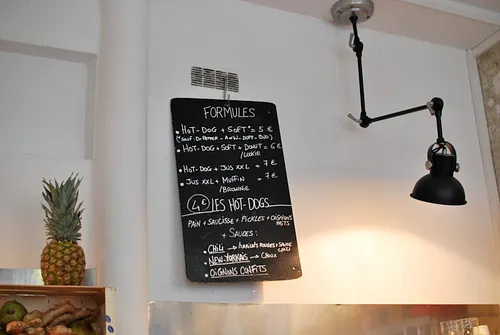 FORMULES
• HOT-DOG + SOFT* = 5 €
• HOT-DOG + SOFT + DONUT = 6 €
/COOKIE
• HOT-DOG + JUS XXL = 7 €
• JUS XXL + MUFFIN = 7 €
/BROWNIE
4€ LES HOT-DOGS
PAIN + SAUCISSE + PICKLES + OIGNONS
FRITS
+ SAUCES :
• CHILI → HARICOTS ROUGES + SAUCE
CHILI
• NEW-YORKAIS → CHOUX
• OIGNONS CONFITS